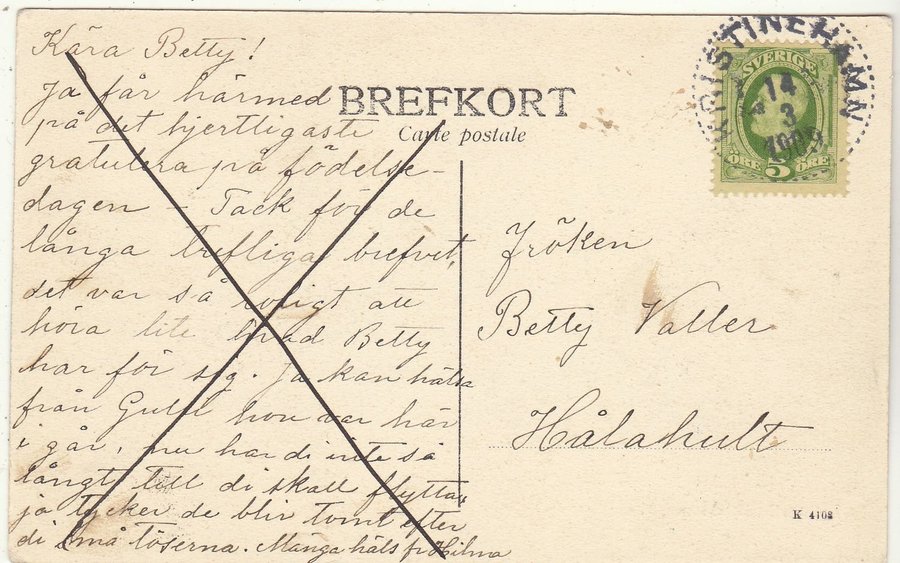 Kära Betty!
Ja får härmed
på det hjertligaste
gratulera på födelse-
dagen - Tack för de
långa trefliga brefvet,
det var så roligt att
höra lite hvad Betty
har för sig. Ja kan hälsa
från Guld hon var här
i går, nu har di inte så
långt till di skall flytta,
ja tycker de blir tomt efter
di små töserna. Många häls fr Hilma
BREFKORT
Carte postale
KRISTINEHAMN
14
3
SVERIGE
ÖRE 5 ÖRE
Fröken
Betty Valler
Hålahult
K 4108